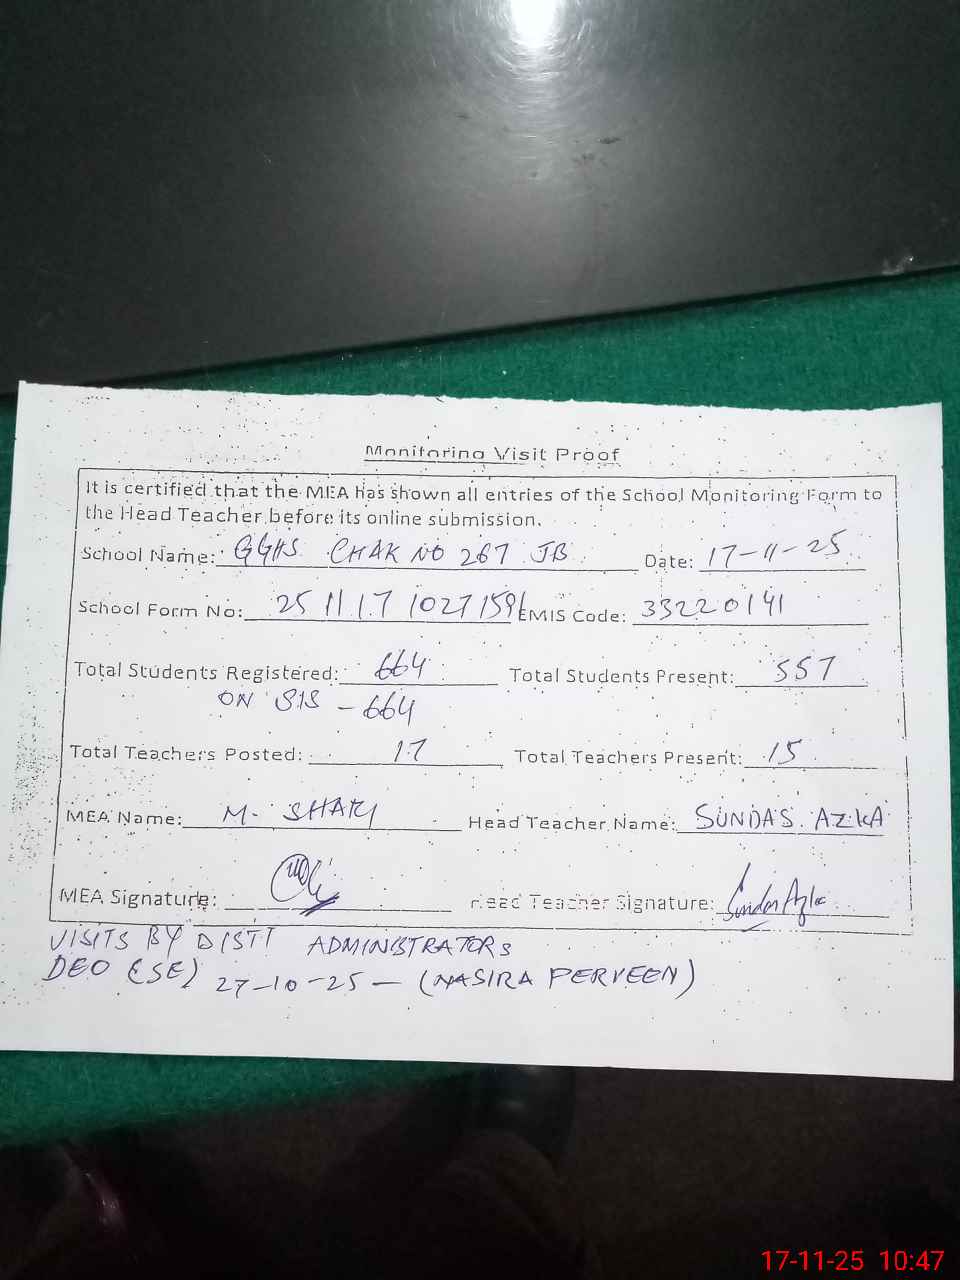 Monitoring Visit Proof
It is certified that the MEA has shown all entries of the School Monitoring Form to
the Head Teacher before its online submission.
School Name: GGHS CHAK NO 267 JB Date: 17-11-25
School Form No: 25 11 17 1027159 EMIS Code: 33220141
Total Students Registered: 664 Total Students Present: 557
ON SIS - 664
Total Teachers Posted: 17 Total Teachers Present: 15
MEA Name: M. Head Teacher Name: SUNDAS AZKA
MEA Signature: Head Teacher Signature: Sundas Azka
VISITS BY DISTT ADMINISTRATORS
DEO (SE) 27-10-25 - (NASIRA PERVEEN)
17-11-25 10:47